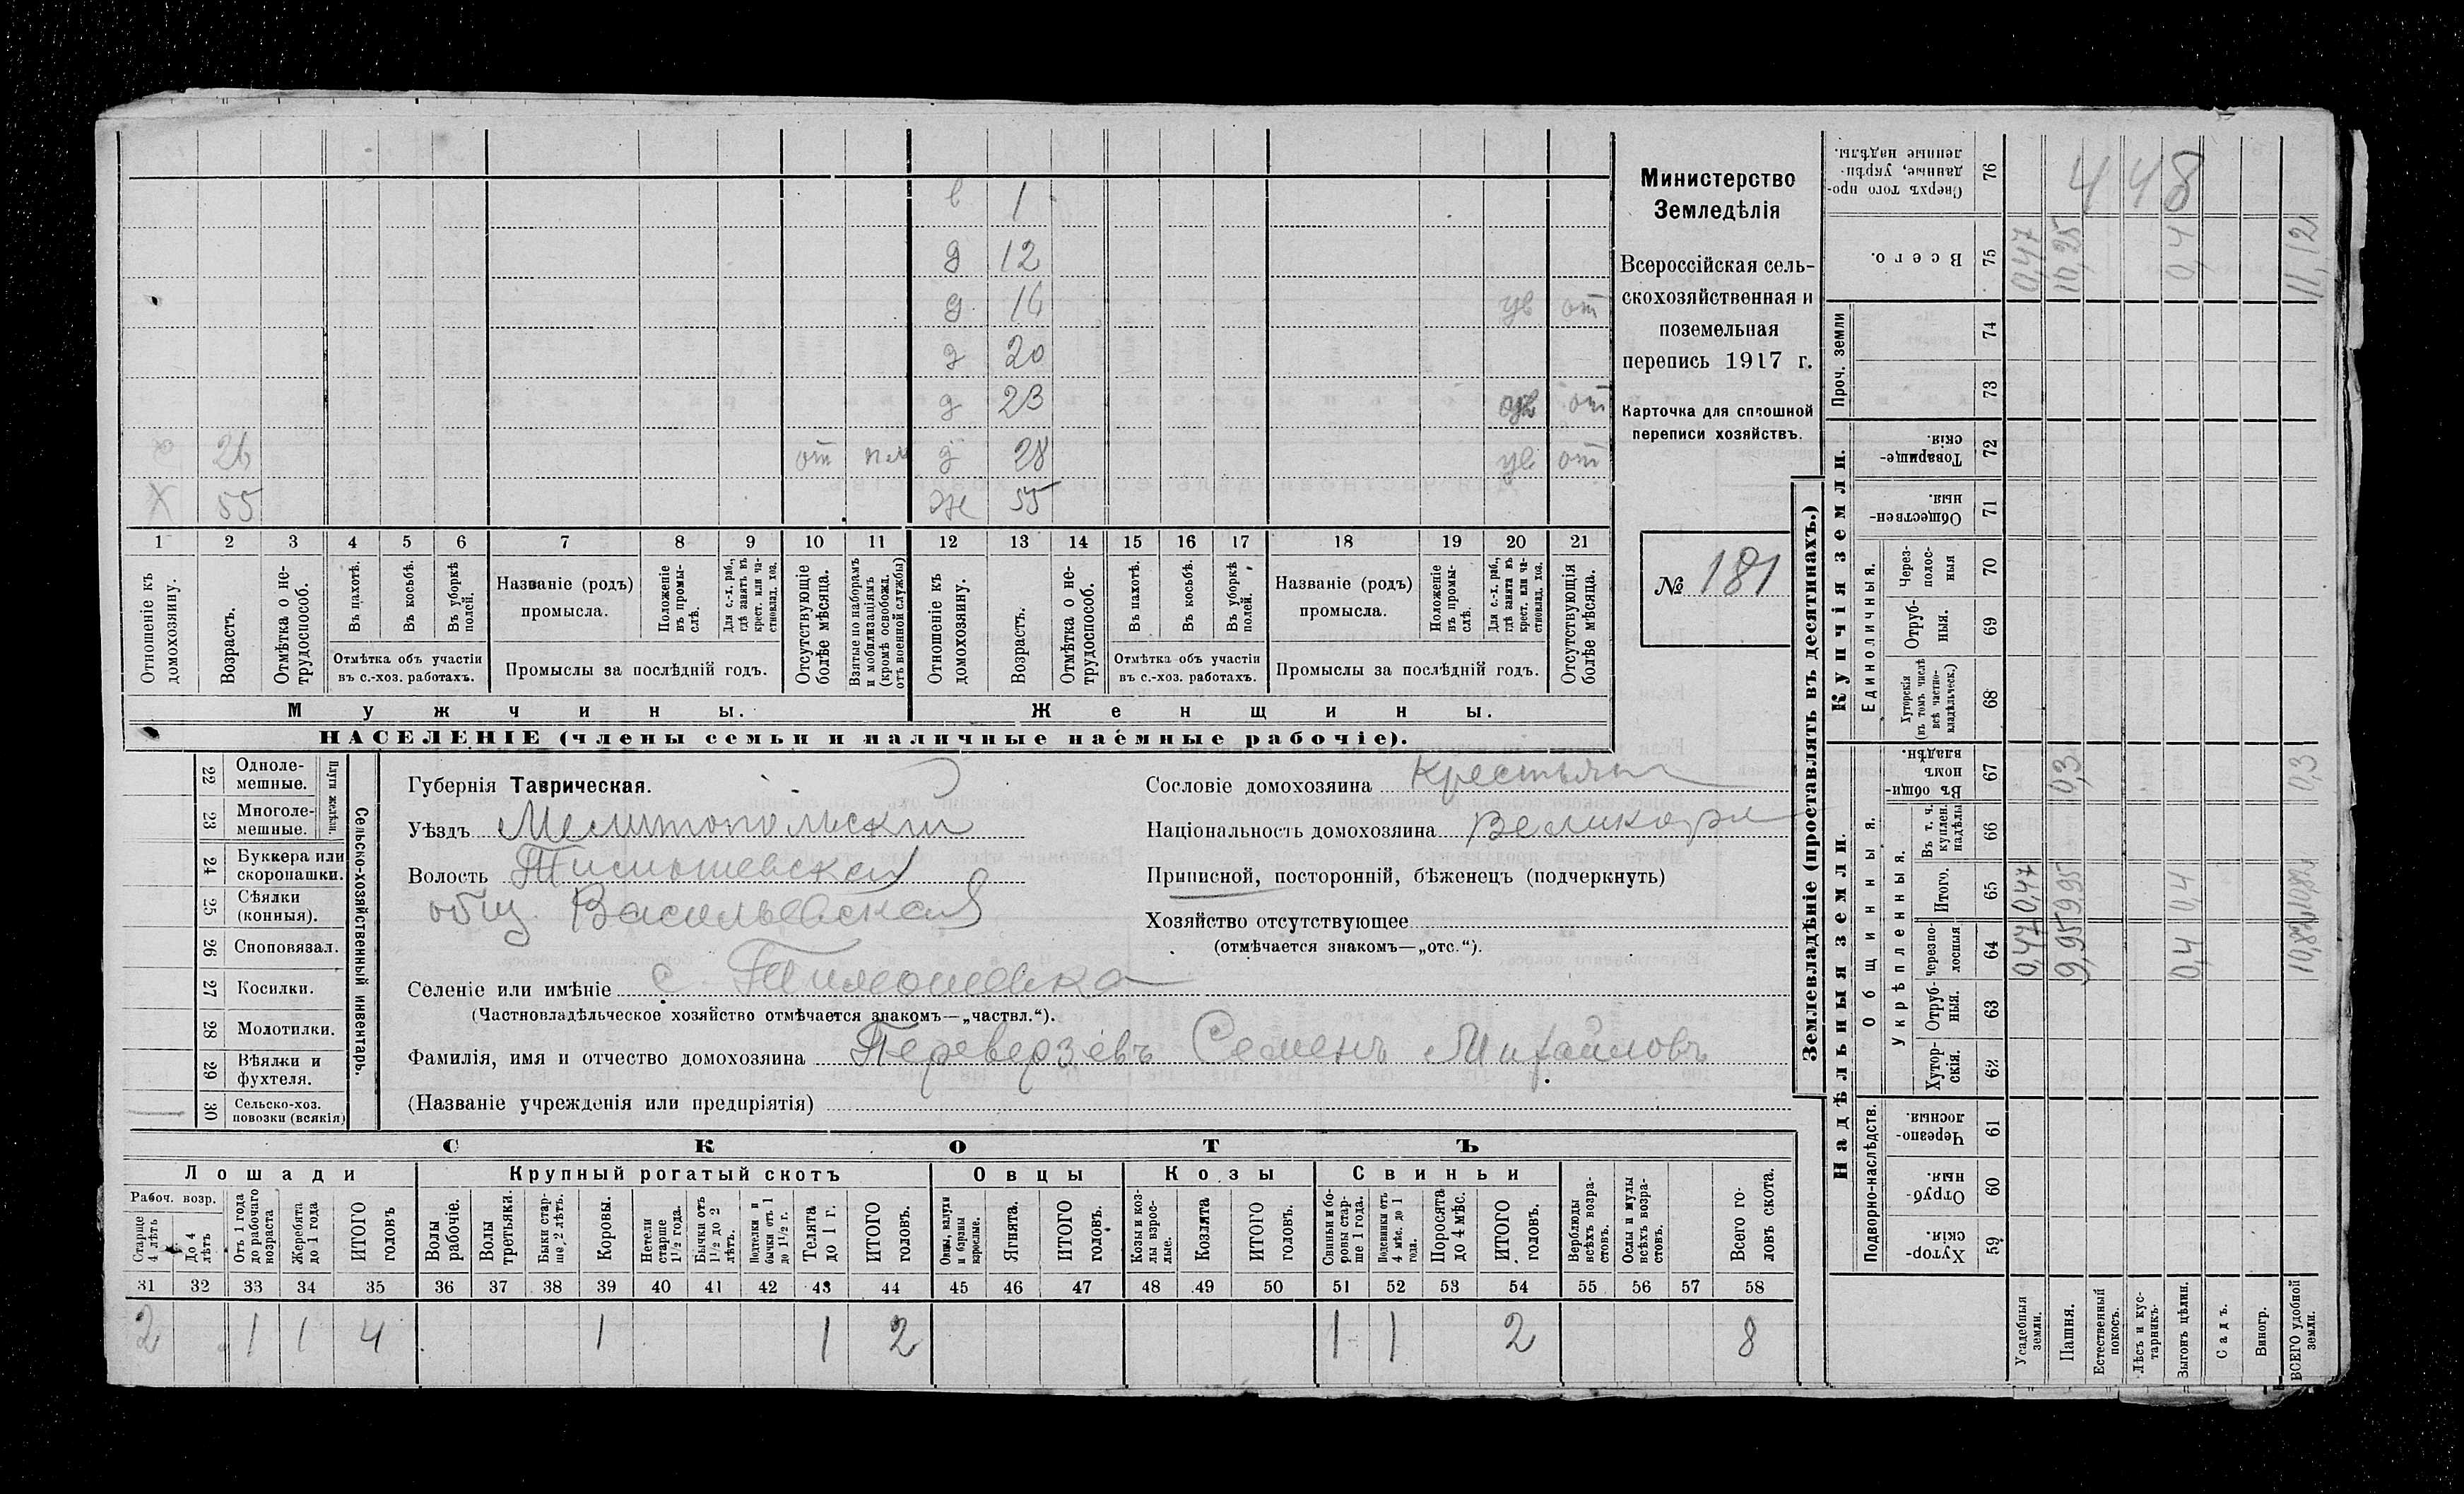 Министерство
Земледѣлія
Всероссійская сель-
скохозяйственная и
поземельная
перепись 1917 г.
Карточка для сплошной
переписи хозяйствъ.
№ 181
в 1
д 12
д 16 ув от
д 20
д 23 от
26 от д 28 ув от
Х 55 ж 55
1 2 3 4 5 6 7 8 9 10 11 12 13 14 15 16 17 18 19 20 21
Отношеніе къ домохозяину.
Возрастъ.
Отмѣтка о не-трудоспособ.
Въ пахотѣ.
Въ косьбѣ.
Въ уборкѣ полей.
Отмѣтка объ участіи въ с.-хоз. работахъ.
Названіе (родъ) промысла.
Положеніе въ промы-слѣ.
Для с.-х. раб., гдѣ занятъ въ крест. или ча-стновлад. хоз.
Промыслы за послѣдній годъ.
Отсутствующіе болѣе мѣсяца.
Взятые по наборамъ и мобилизаціямъ (кромѣ освобожд. отъ военной службы)
Отношеніе къ домохозяину.
Возрастъ.
Отмѣтка о не-трудоспособ.
Въ пахотѣ.
Въ косьбѣ.
Въ уборкѣ полей.
Отмѣтка объ участіи въ с.-хоз. работахъ.
Названіе (родъ) промысла.
Положеніе въ промы-слѣ.
Для с.-х. раб., гдѣ занята въ крест. или ча-стновлад. хоз.
Промыслы за послѣдній годъ.
Отсутствующія болѣе мѣсяца.
Мужчины. Женщины.
НАСЕЛЕНІЕ (члены семьи и наличные наемные рабочіе).
22 Одноле-мешные.
23 Многоле-мешные.
Плуги желѣзн.
24 Буккера или скоропашки.
25 Сѣялки (конныя).
26 Сноповязал.
27 Косилки.
28 Молотилки.
29 Вѣялки и фухтеля.
30 Сельско-хоз. повозки (всякія)
Сельско-хозяйственный инвентарь.
Губернія Таврическая.
Уѣздъ Мелитопольскій
Волость Тимошевская
общ. Васильевская
Селеніе или имѣніе с. Тимошевка
(Частновладѣльческое хозяйство отмѣчается знакомъ—„частвл.“).
Фамилія, имя и отчество домохозяина Переверзевъ Семенъ Михайловъ
(Названіе учрежденія или предпріятія)
Сословіе домохозяина крестьян
Національность домохозяина великорос
Приписной, посторонній, бѣженецъ (подчеркнуть)
Хозяйство отсутствующее
(отмѣчается знакомъ—„отс.“).
СКОТЪ
Лошади Крупный рогатый скотъ Овцы Козы Свиньи
Рабоч. возр.
Старше 4 лѣтъ
До 4 лѣтъ
Отъ 1 года до рабочаго возраста
Жеребята до 1 года
ИТОГО головъ
Волы рабочіе.
Волы третьяки.
Быки стар-ше 2 лѣтъ.
Коровы.
Нетели старше 1½ года.
Бычки отъ 1½ до 2 лѣтъ.
Подтелки и бычки отъ 1 до 1½ г.
Телята до 1 г.
ИТОГО головъ.
Овцы, валухи и бараны взрослые.
Ягнята.
ИТОГО головъ.
Козы и коз-лы взрос-лые.
Козлята
ИТОГО головъ.
Свиньи и бо-ровы стар-ше 1 года.
Подсвинки отъ 4 мѣс. до 1 года.
Поросята до 4 мѣс.
ИТОГО головъ.
Верблюды всѣхъ возра-стовъ.
Ослы и мулы всѣхъ возра-стовъ.
Всего го-ловъ скота.
31 32 33 34 35 36 37 38 39 40 41 42 43 44 45 46 47 48 49 50 51 52 53 54 55 56 57 58
2 1 1 4 1 1 2 1 1 2 8
Землевладѣніе (проставлять въ десятинахъ.)
Купчія земли.
Надѣльныя земли.
Проч. земли
Единоличныя.
Общинныя.
Укрѣпленныя.
Подворно-наслѣдств.
76 Сверхъ того про-данные, укрѣп-ленные надѣлы. 448
75 Всего. 0,47 10,25 0,4 11,12
74
73
72 Товарище-скія.
71 Обществен-ныя.
70 Через-полос-ныя
69 Отруб-ныя.
68 Хуторскія (въ томъ числѣ всѣ частно-владѣльческ.)
67 Въ общин-номъ владѣн. 0,3 0,3
66 Въ т. ч. куплен. надѣлы
65 Итого. 0,47 9,95 0,4 10,82
64 Черезпо-лосныя 0,47 9,95 0,4 10,82
63 Отруб-ныя.
62 Хутор-скія.
61 Черезпо-лосныя.
60 Отруб-ныя.
59 Хутор-скія.
Усадебныя земли.
Пашня.
Естественный покосъ.
Лѣсъ и кус-тарникъ.
Выгонъ цѣлин.
Садъ.
Виногр.
ВСЕГО удобной земли.